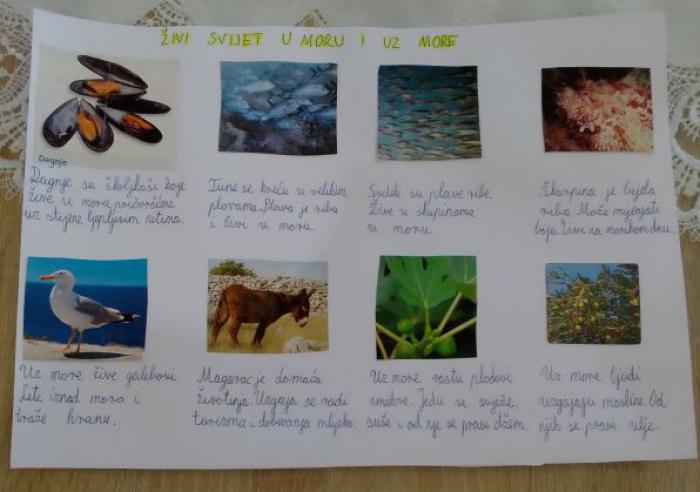 ŽIVI SVIJET U MORU I UZ MORE
Dagnje
Dagnje su školjkaši koje
žive u moru pričvršćene
uz stijene ljepljivim nitima.
Tune se kreću u velikim
plovama. Plava je riba
i živi u moru.
Srdele su plave ribe.
Žive u skupinama
u moru.
Škarpina je bijela
riba. Može mijenjati
boju. Živi na morskom dnu.
Uz more žive galebovi.
Lete iznad mora i
traže hranu.
Magarac je domaća
životinja. Uzgaja se radi
turizma i dobivanja mlijeka.
Uz more rastu plodovi
smokve. Jedu se svježe,
suše i od nje se pravi džem.
Uz more ljudi
uzgajaju masline. Od
njih se pravi ulje.